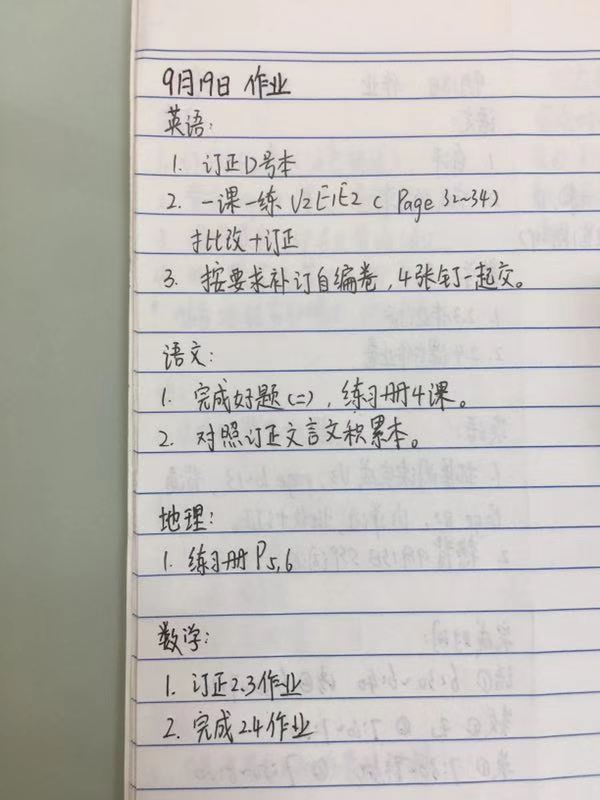 9月19日 作业
英语:
1. 订正D号本
2. 一课一练 U2E1E2 ( Page 32~34)
批改+订正
3. 按要求补订自编卷,4张钉一起交。
语文:
1. 完成好题(二),练习册4课。
2. 对照订正文言文积累本。
地理:
1. 练习册 P5,6
数学:
1. 订正2.3作业
2. 完成2.4作业